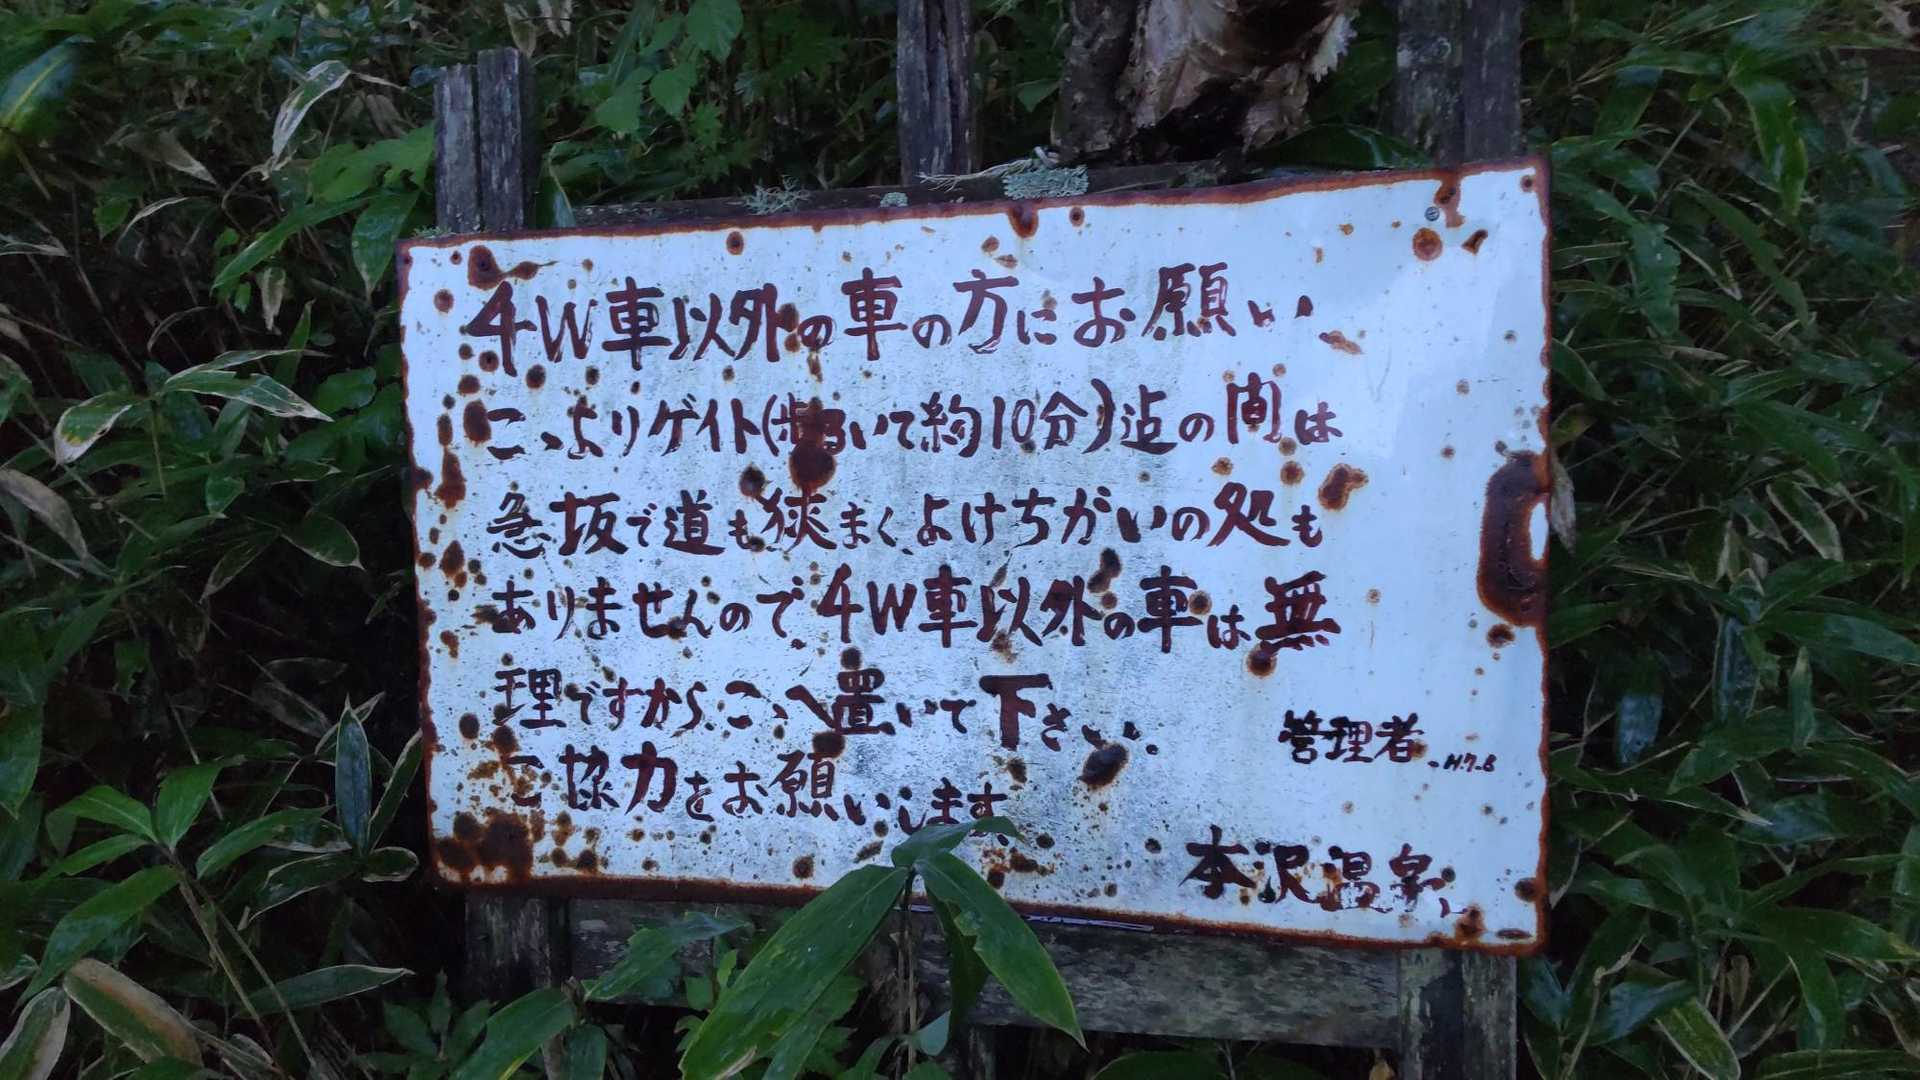 4W車以外の車の方にお願い
こゝよりゲイト(歩るいて約10分)迠の間は
急坂で道も狭まくよけちがいの処も
ありませんので4W車以外の車は無
理ですからこゝへ置いて下さい。
ご協力をお願いします。
管理者 H.7.8
本沢温泉